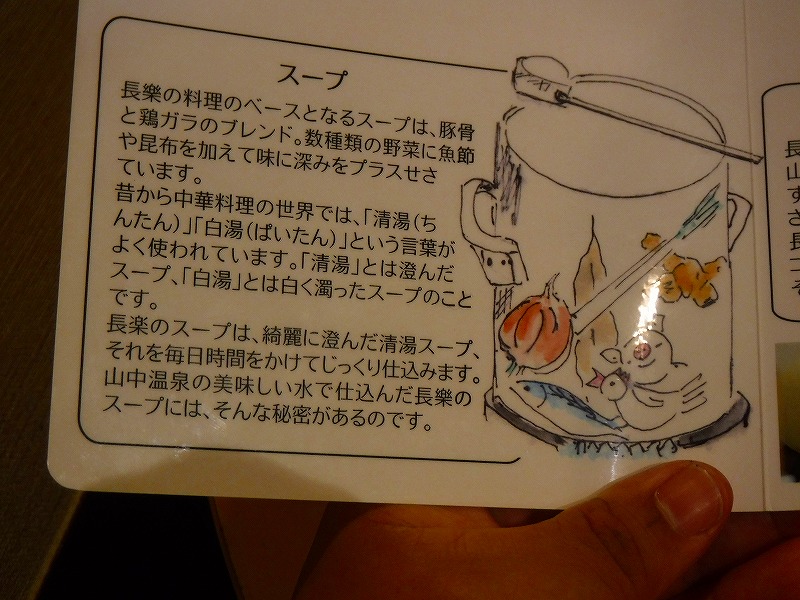 スープ
長樂の料理のベースとなるスープは、豚骨
と鶏ガラのブレンド。数種類の野菜に魚節
や昆布を加えて味に深みをプラスせさ
ています。
昔から中華料理の世界では、「清湯(ち
んたん)」「白湯(ぱいたん)」という言葉が
よく使われています。「清湯」とは澄んだ
スープ、「白湯」とは白く濁ったスープのこと
です。
長楽のスープは、綺麗に澄んだ清湯スープ、
それを毎日時間をかけてじっくり仕込みます。
山中温泉の美味しい水で仕込んだ長樂の
スープには、そんな秘密があるのです。
長
山
す
さ
長